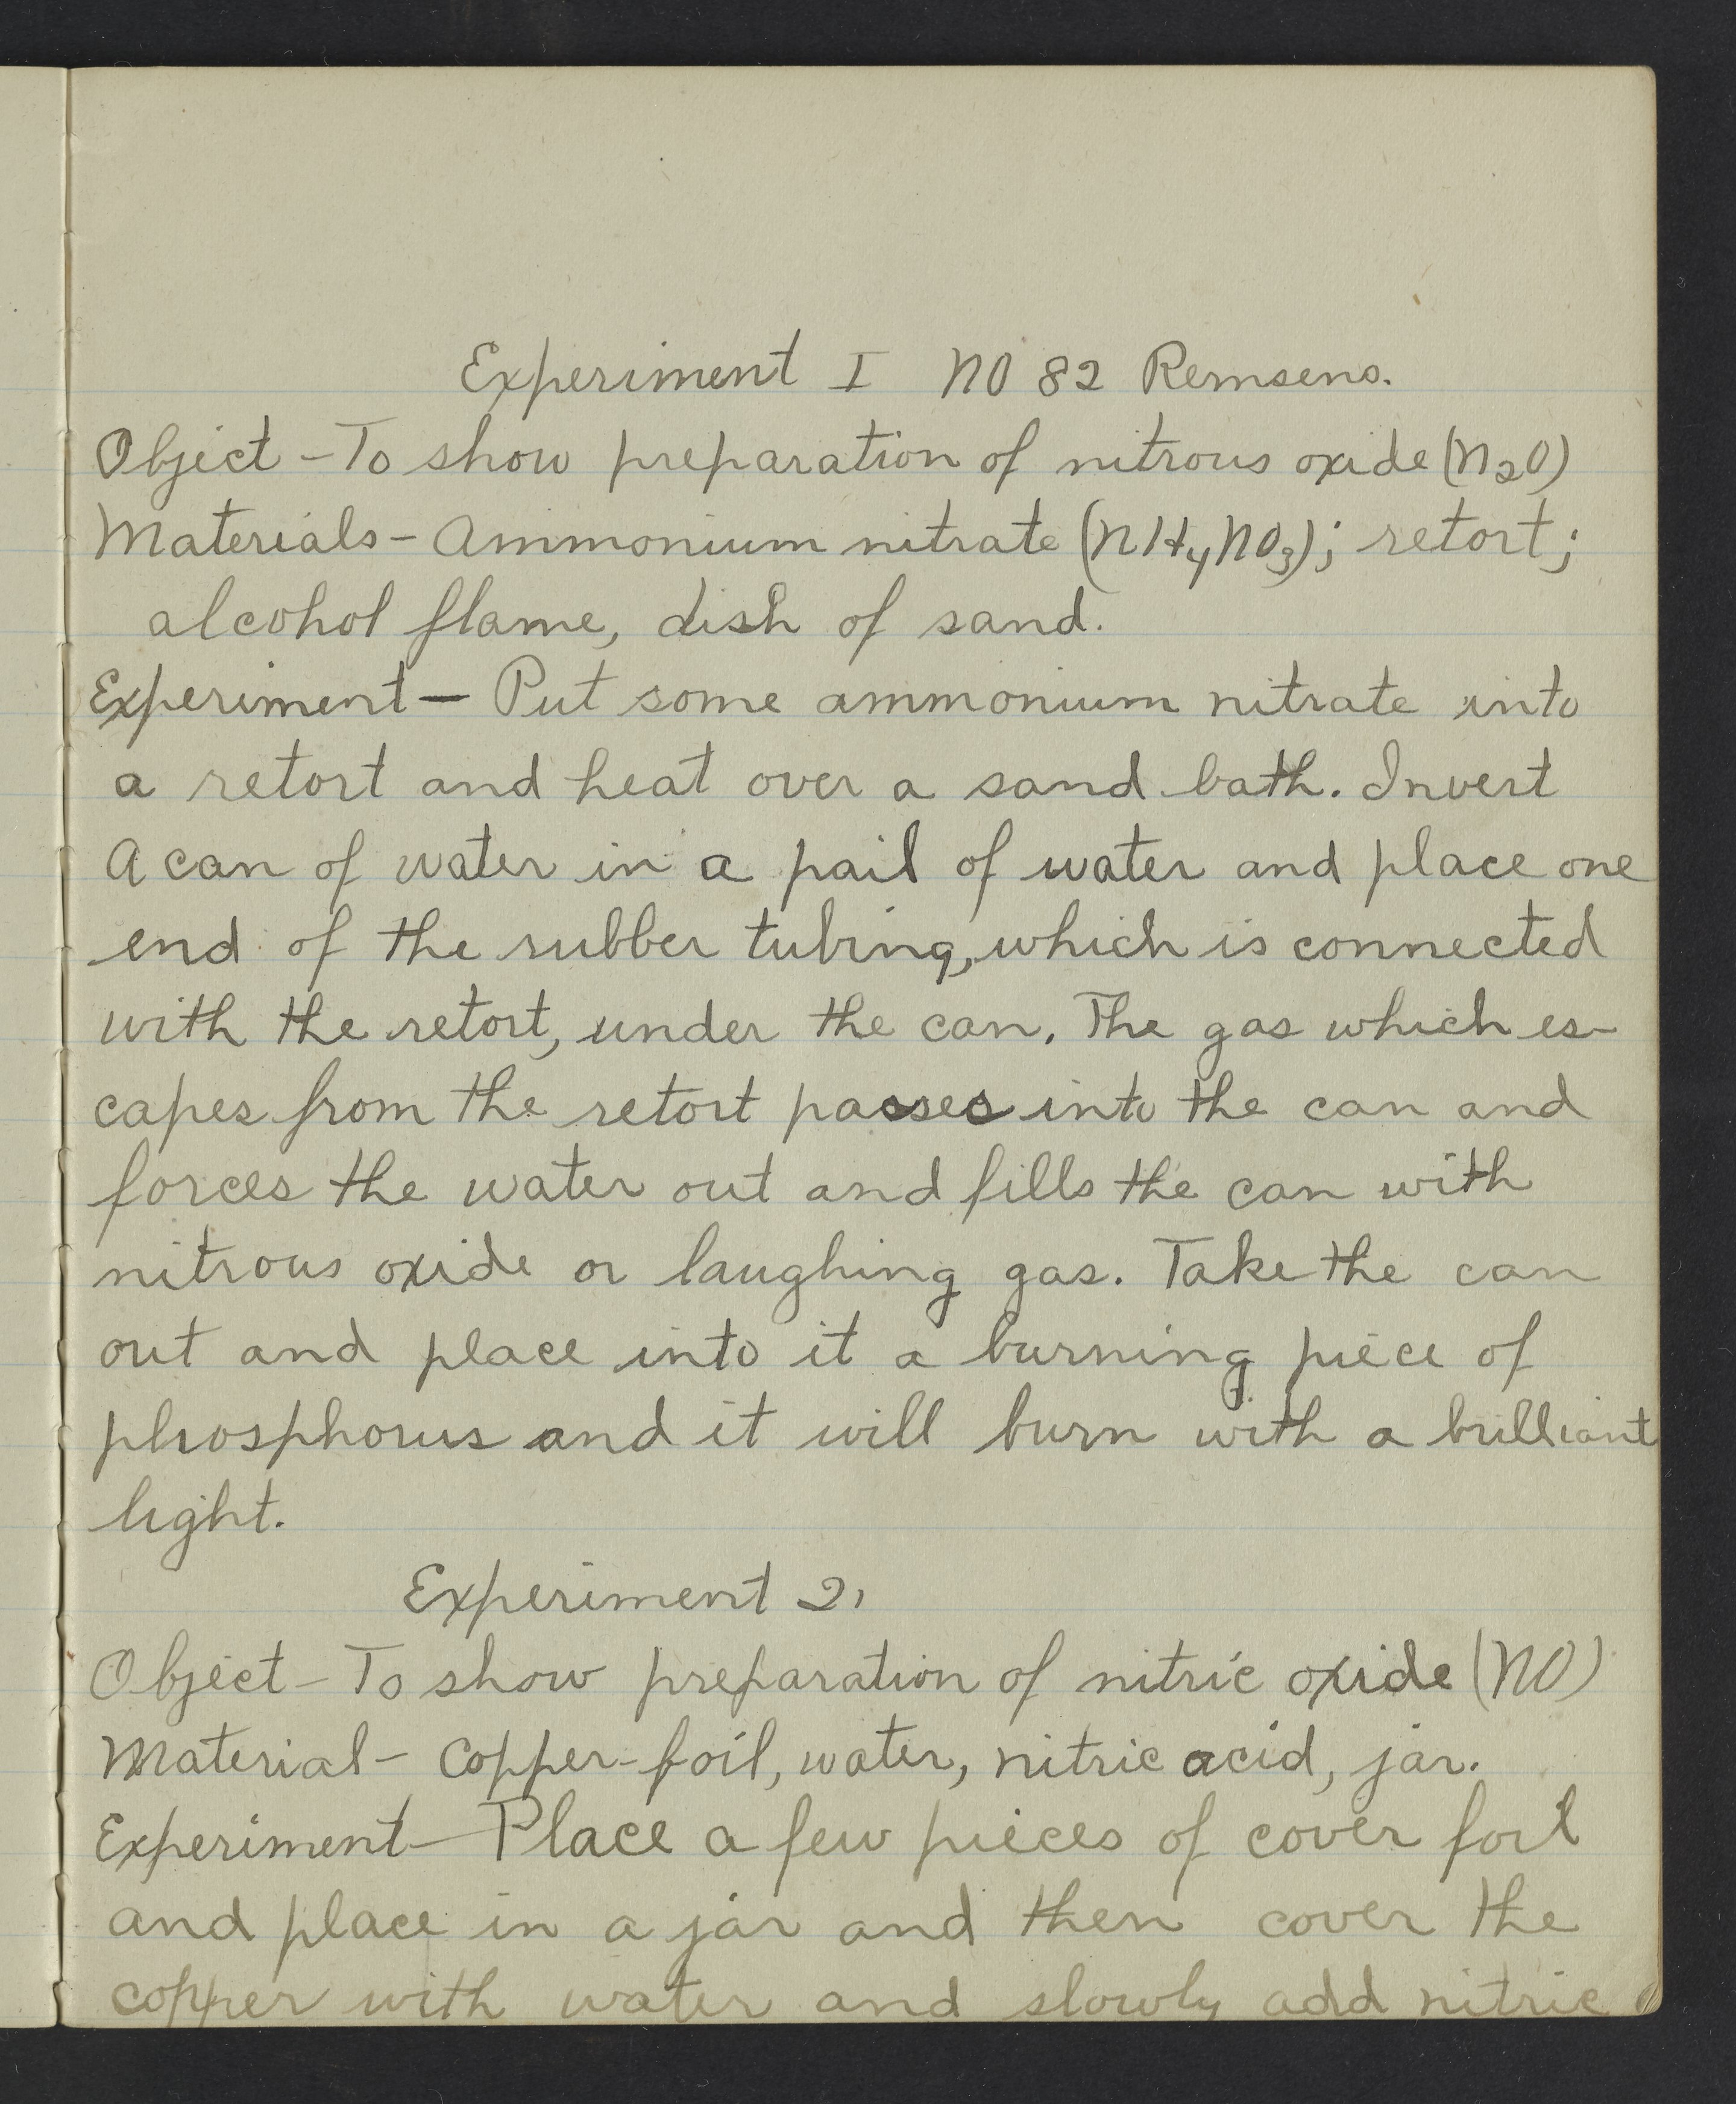 Experiment I NO 82 Remsens.
Object - To show preparation of nitrous oxide (N2O)
Materials - Ammonium nitrate (NH4NO3); retort;
alcohol flame, dish of sand.
Experiment - Put some ammonium nitrate into
a retort and heat over a sand bath. Invert
A can of water in a pail of water and place one
end of the rubber tubing, which is connected
with the retort, under the can. The gas which es-
capes from the retort passes into the can and
forces the water out and fills the can with
nitrous oxide or laughing gas. Take the can
out and place into it a burning piece of
phosphorus and it will burn with a brilliant
light.
Experiment 2.
Object - To show preparation of nitric oxide (NO)
Material - Copper-foil, water, nitric acid, jar.
Experiment - Place a few pieces of cover foil
and place in a jar and then cover the
copper with water and slowly add nitric